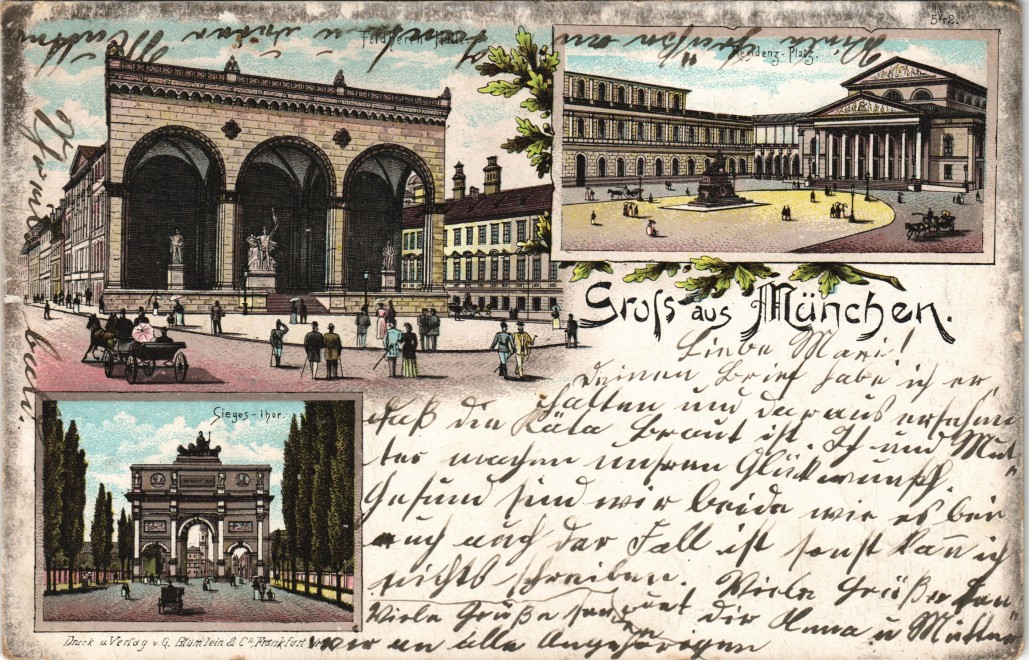 542.
Feldherrn-Halle.
Residenz-Platz.
Gruss aus München.
Sieges-Thor.
Druck u. Verlag v. G. Blümlein & Co., Frankfurt
Liebe Mari!
Deinen Brief habe ich er„
halten und daraus ersehen
daß die Käta Braut ist. Ich und Mut„
ter machen unsren Glückwunsch.
Gesund sind wir beide wie es bei
euch auch der Fall ist sonst kann ich
nichts schreiben. Viele Grüße
dir Anna u Mutter
Viele Grüße
wir an alle Angehörigen
Viele Grüße an
u